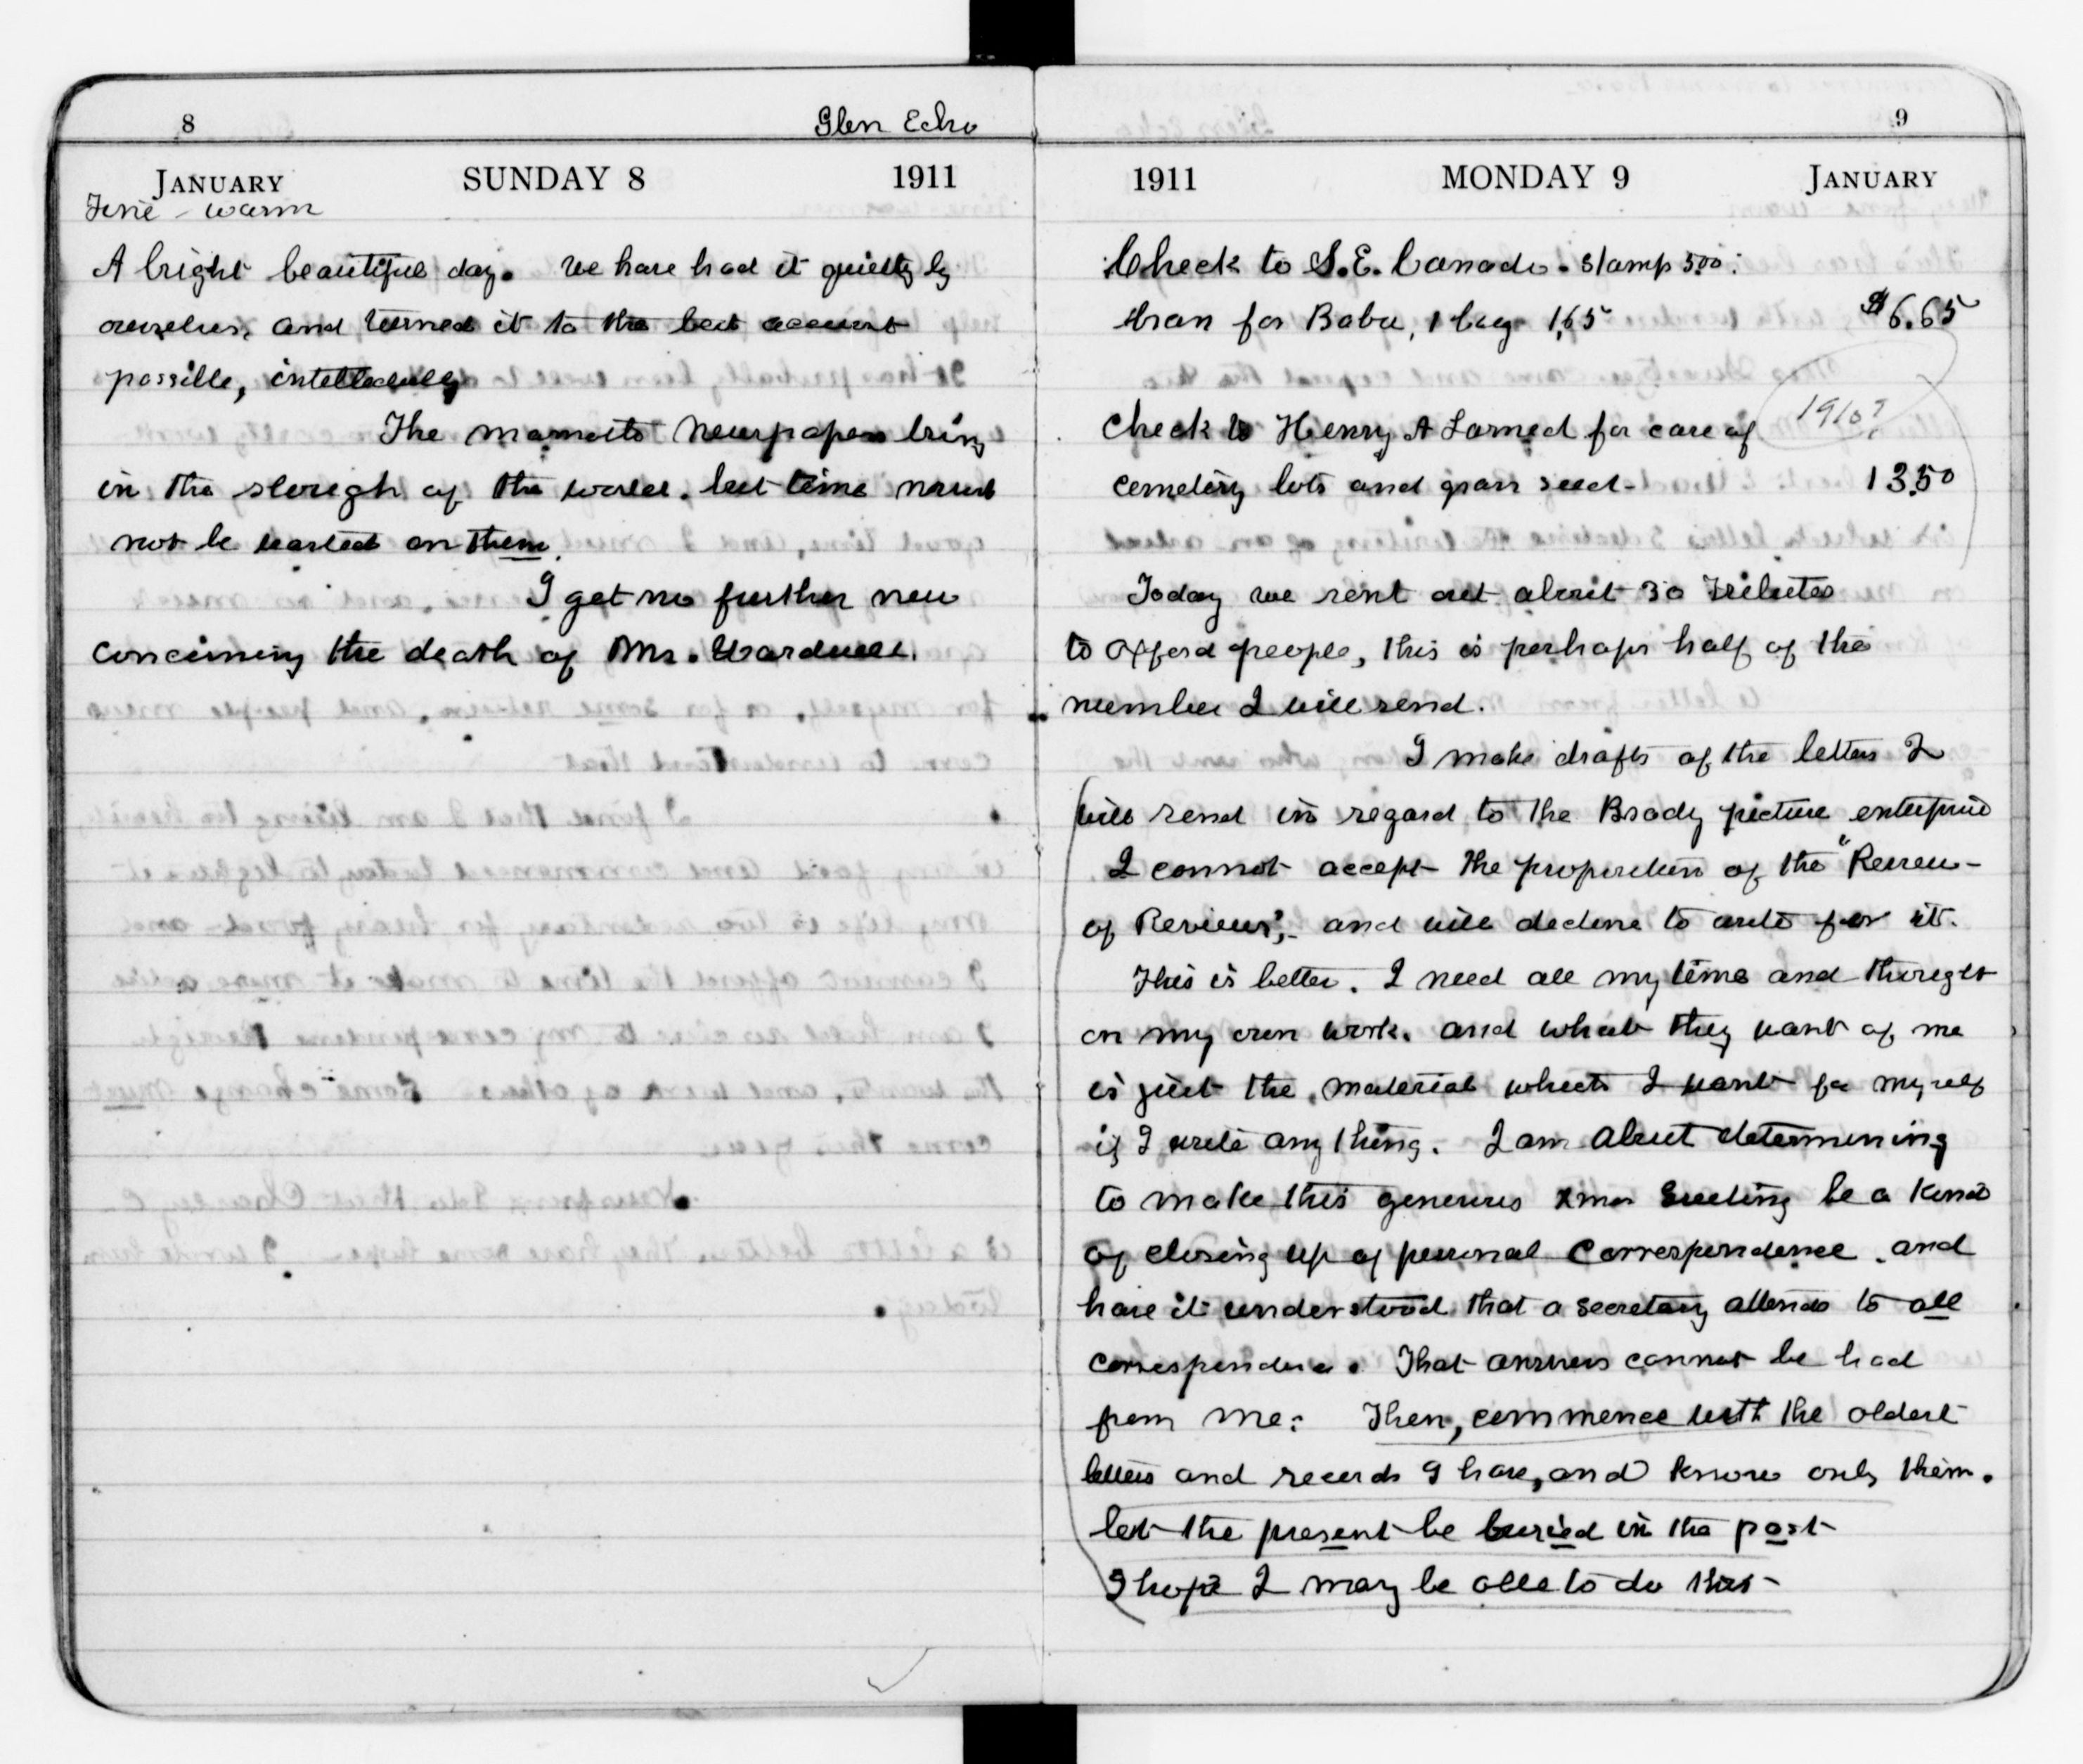 8
Glen Echo
JANUARY SUNDAY 8 1911
Fine - warm
A bright beautiful day. We have had it quietly by
ourselves, and turned it to the best account
possible, intellectually
The mammoth Newspapers bring
in the slough of the world. but time must
not be wasted on them.
I get no further news
concerning the death of Mrs. Wardwell.
9
1911 MONDAY 9 JANUARY
Check to S.E. Canada. Stamp 5.00.
bran for Baba, 1 bag 1,65 $6.65
Check to Henry A Larned for care of 1910?
cemetery lots and grass seed - 13.50
Today we sent out about 30 Tributes
to Oxford people, this is perhaps half of the
number I will send.
I make drafts of the letters I
will send in regard to the Brady picture enterprise
I cannot accept the proposition of the "Review -
of Reviews", - and will decline to write for it.
This is better. I need all my time and thought
on my own work. and what they want of me
is just the material which I want for myself
if I write any thing. I am about determining
to make this generous Xmas Greeting be a kind
of closing up of personal Correspondence. and
have it understood that a secretary attends to all
correspondence. That answers cannot be had
from me: Then, commence with the oldest
letters and records I have, and know only them.
let the present be buried in the past
I hope I may be able to do this -